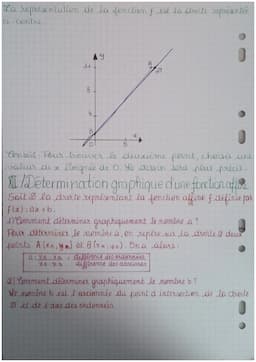 La représentation de la fonction f est la droite représentée
ci-contre.
y
A
x
0
Conseil: Pour trouver le deuxième point, choisis une
valeur de x éloignée de 0. Le dessin sera plus précis.
III/Détermination graphique d'une fonction affine
Soit D la droite représentant la fonction affine f définie par
f(x)= ax + b.
1) Comment déterminer graphiquement le nombre a ?
Pour déterminer le nombre a, on repère sur la droite D deux
points A(xA, yA) et B(xB, yB). On a alors:
différence des ordonnées
différence des abscisses
2) Comment déterminer graphiquement le nombre b ?
Le nombre b est l'ordonnée du point d'intersection de la droite
D et de l'axe des ordonnées.